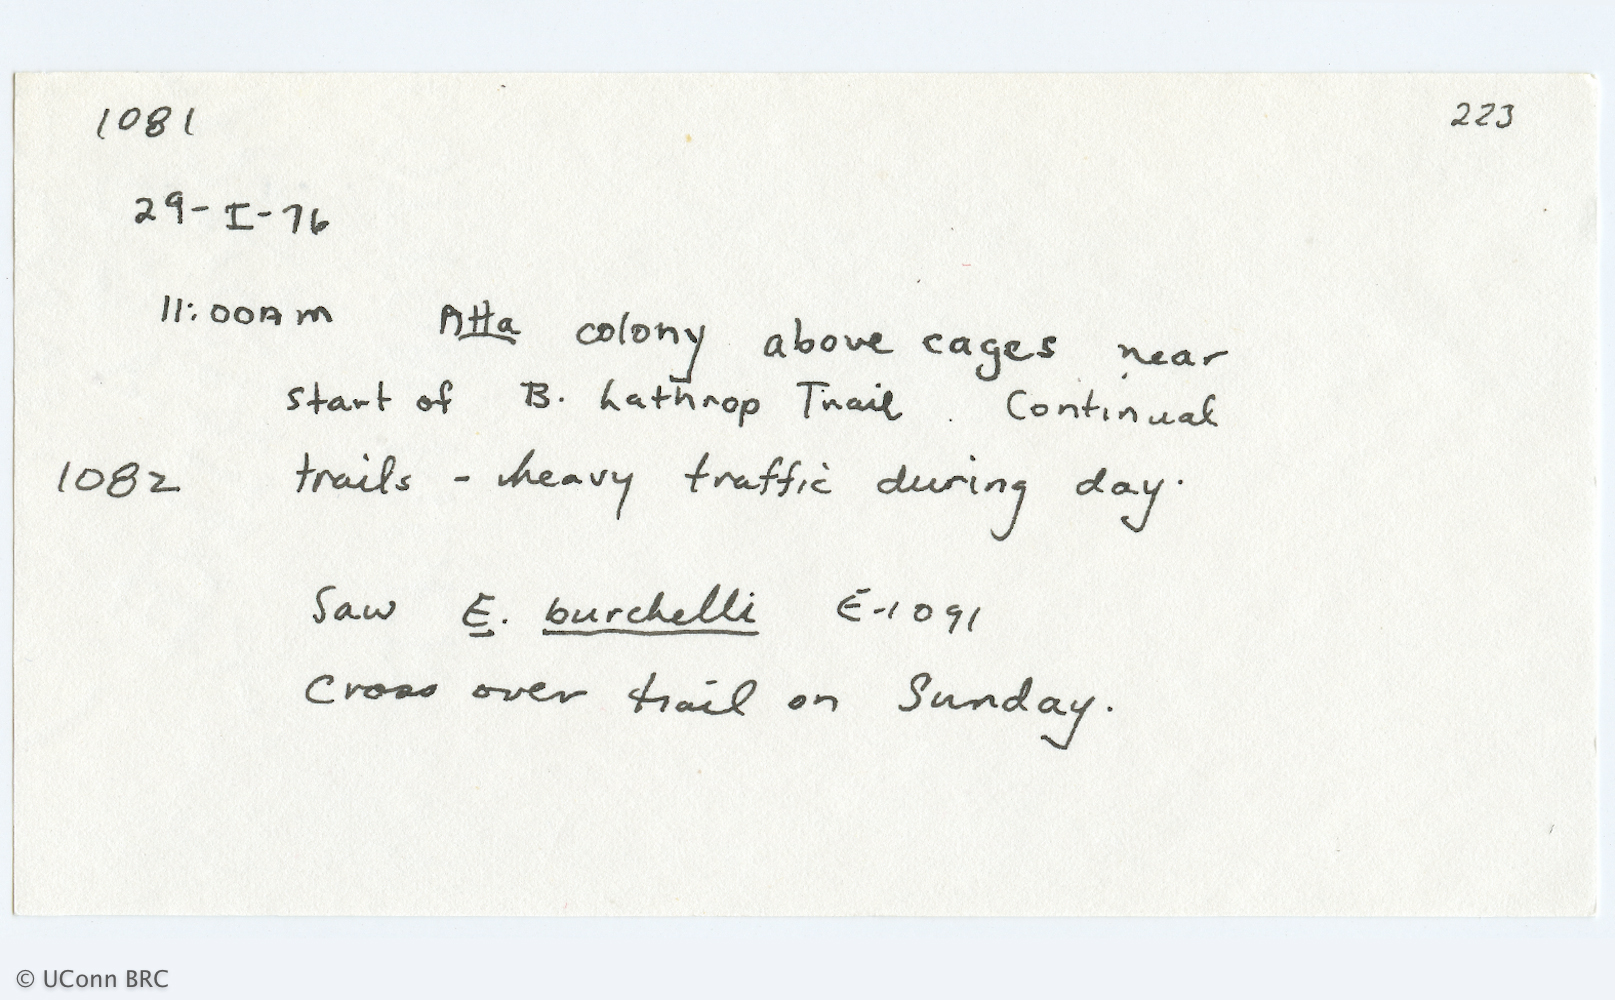 1081 223
29-I-76
11:00AM Atta colony above cages near
start of B. Lathrop Trail. Continual
1082 trails - heavy traffic during day.
Saw E. burchelli E-1091
cross over trail on Sunday.
© UConn BRC